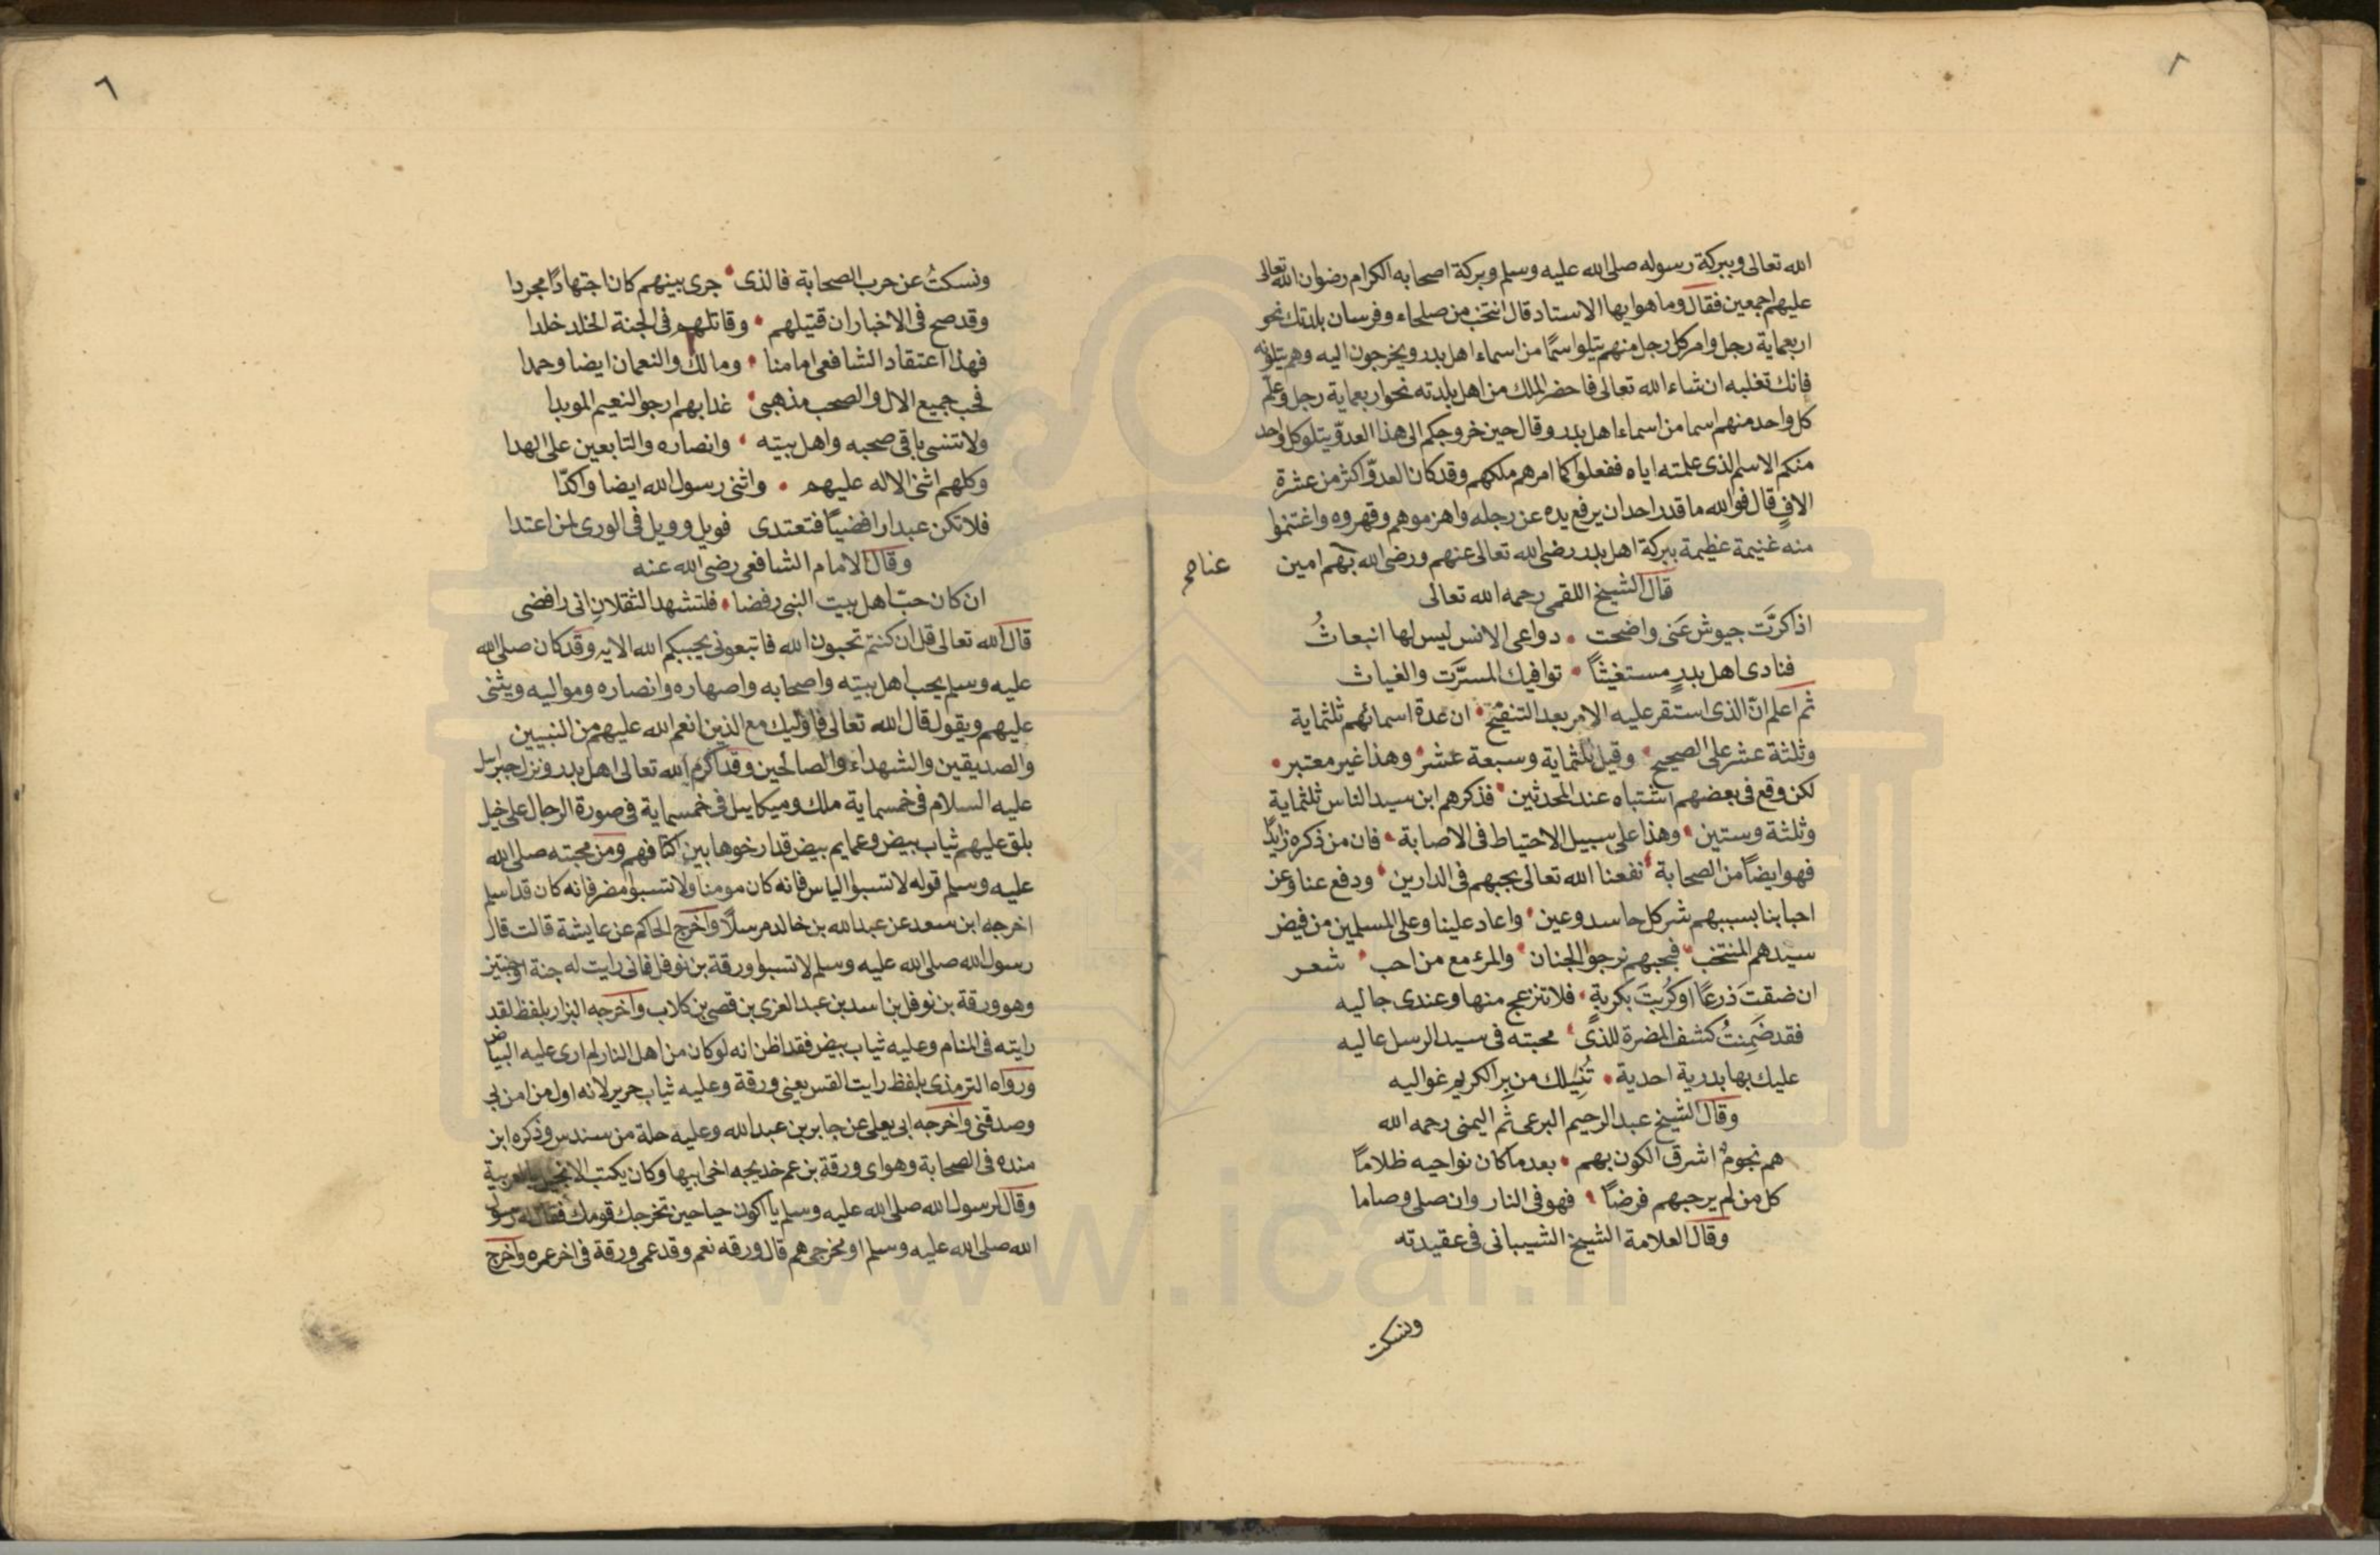 الله تعالى وببركة رسوله صلى الله عليه وسلم وبركة اصحابه الكرام رضوان الله تعالى
عليهم اجمعين فقال وما هو ايها الاستاد قال انتخب من صلحاء وفرسان بلدتك نحو
اربعماية رجل وامر كل رجل منهم يتلوا سمًا من اسماء اهل بدر ويخرجون اليه وهم يتلونه
فانك تغلبه ان شاء الله تعالى فاحضر الملك من اهل بلدته نحو اربعماية رجل وعلّم
كل واحد منهم اسما من اسماء اهل بدر وقال حين خروجكم الى هذا العدوّ يتلو كل واحد
منكم الاسم الذى علمته اياه ففعلوا كما امرهم ملكهم وقد كان العدوّ اكثر من عشرة
الافٍ قال فوالله ما قدر احد ان يرفع يده عن رجله واهزموهم وقهروه واغتنموا
منه غنيمة عظيمة ببركة اهل بدر رضى الله تعالى عنهم ورضى الله بهم امين
عنا صح
قال الشيخ اللقمى رحمه الله تعالى
اذا كرَّت جيوش عَنى واضحت • دواعى الانس ليس لها انبعاثُ
فنادى اهل بدرٍ مستغيثاً • توافيك المسرَّت والغياث
ثم اعلم انّ الذى استقر عليه الامر بعد التنقيح • ان عدة اسمائهم ثلثماية
وثلثة عشر على الصحيح • وقيل ثلثماية وسبعة عشر • وهذا غير معتبر •
لكن وقع فى بعضهم اشتباه عند المحدثين • فذكرهم ابن سيد الناس ثلثماية
وثلثة وستين • وهذا على سبيل الاحتياط فى الاصابة • فان من ذكره زايدًا
فهو ايضاً من الصحابة • نفعنا الله تعالى بحبهم فى الدارين • ودفع عنا وعن
احبابنا بسببهم شر كل حاسد وعين • واعاد علينا وعلى المسلمين من فيض
سيدهم المنتخب • فبحبهم نرجوا الجنان • والمرء مع من احب • شعر
ان ضقتَ ذرعًا او كُربتَ بكربةٍ • فلا تنزعج منها وعندى جاليه
فقد ضَمِنتُ كشف المضرة للذى • محبته فى سيد الرسل عاليه
عليك بها بدرية احدية • تُنِيلك من بِر الكريم غواليه
وقال الشيخ عبد الرحيم البرعى ثم اليمنى رحمه الله
هم نجومٌ اشرق الكون بهم • بعد ما كان نواحيه ظلاماً
كل من لم ير حبهم فرضاً • فهو فى النار وان صلى وصاما
وقال العلامة الشيخ الشيبانى فى عقيدته
ونسكت
٦
ونسكتُ عن حرب الصحابة فالذى • جرى بينهم كان اجتهادًا مجردا
وقد صح فى الاخبار ان قتيلهم • وقاتلهم فى الجنة الخلد خلدا
فهذا اعتقاد الشافعى امامنا • ومالك والنعمان ايضا وحمدا
فحب جميع الال والصحب مذهبى • غدا بهم ارجو النعيم الموبدا
ولا تنسى باقى صحبه واهل بيته • وانصاره والتابعين على الهدا
وكلهم اثنى الاله عليهم • واثنى رسول الله ايضا واكدّا
فلا تكن عبدا رافضيًا فتعتدى فويل وويل فى الورى لمن اعتدا
وقال الامام الشافعى رضى الله عنه
ان كان حبّ اهل بيت النبى رفضا • فلتشهد الثقلان انى رافضى
قال الله تعالى قل ان كنتم تحبون الله فاتبعونى يحببكم الله الايه وقد كان صلى الله
عليه وسلم يحب اهل بيته واصحابه واصهاره وانصاره ومواليه ويثنى
عليهم ويقول قال الله تعالى فاوليك مع الذين انعم الله عليهم من النبيين
والصديقين والشهداء والصالحين وقد اكرم الله تعالى اهل بدر ونزل جبرايل
عليه السلام فى خمسماية ملك وميكاييل فى خمسماية فى صورة الرجال على خيل
بلق عليهم ثياب بيض وعمايم بيض قد ارخوها بين اكتافهم ومن محبته صلى الله
عليه وسلم قوله لا تسبوا الياس فانه كان مومنا ولا تسبوا مضر فانه كان قد اسلم
اخرجه ابن سعد عن عبد الله بن خالد مرسلًا واخرج الحاكم عن عايشة قالت قال
رسول الله صلى الله عليه وسلم لا تسبوا ورقة بن نوفل فانى رايت له جنة او جنتين
وهو ورقة بن نوفل بن اسد بن عبد العزى بن قصى بن كلاب واخرجه البزار بلفظ لقد
رايته فى المنام وعليه ثياب بيض فقد اظن انه لو كان من اهل النار لم ارى عليه البياض
ورواه الترمذى بلفظ رايت القس يعنى ورقة وعليه ثياب حرير لانه اول من امن بى
وصدقنى واخرجه ابى يعلى عن جابر بن عبد الله وعليه حلة من سندس وذكره ابن
منده فى الصحابة وهو اى ورقة بن عم خديجه اخى ابيها وكان يكتب الانجيل بالعربية
وقال لرسول الله صلى الله عليه وسلم يا اكون حيا حين تخرجك قومك فقال له رسول
الله صلى الله عليه وسلم او مخرجى هم قال ورقه نعم وقد عمى ورقة فى اخر عمره واخرج
www.ical.ir